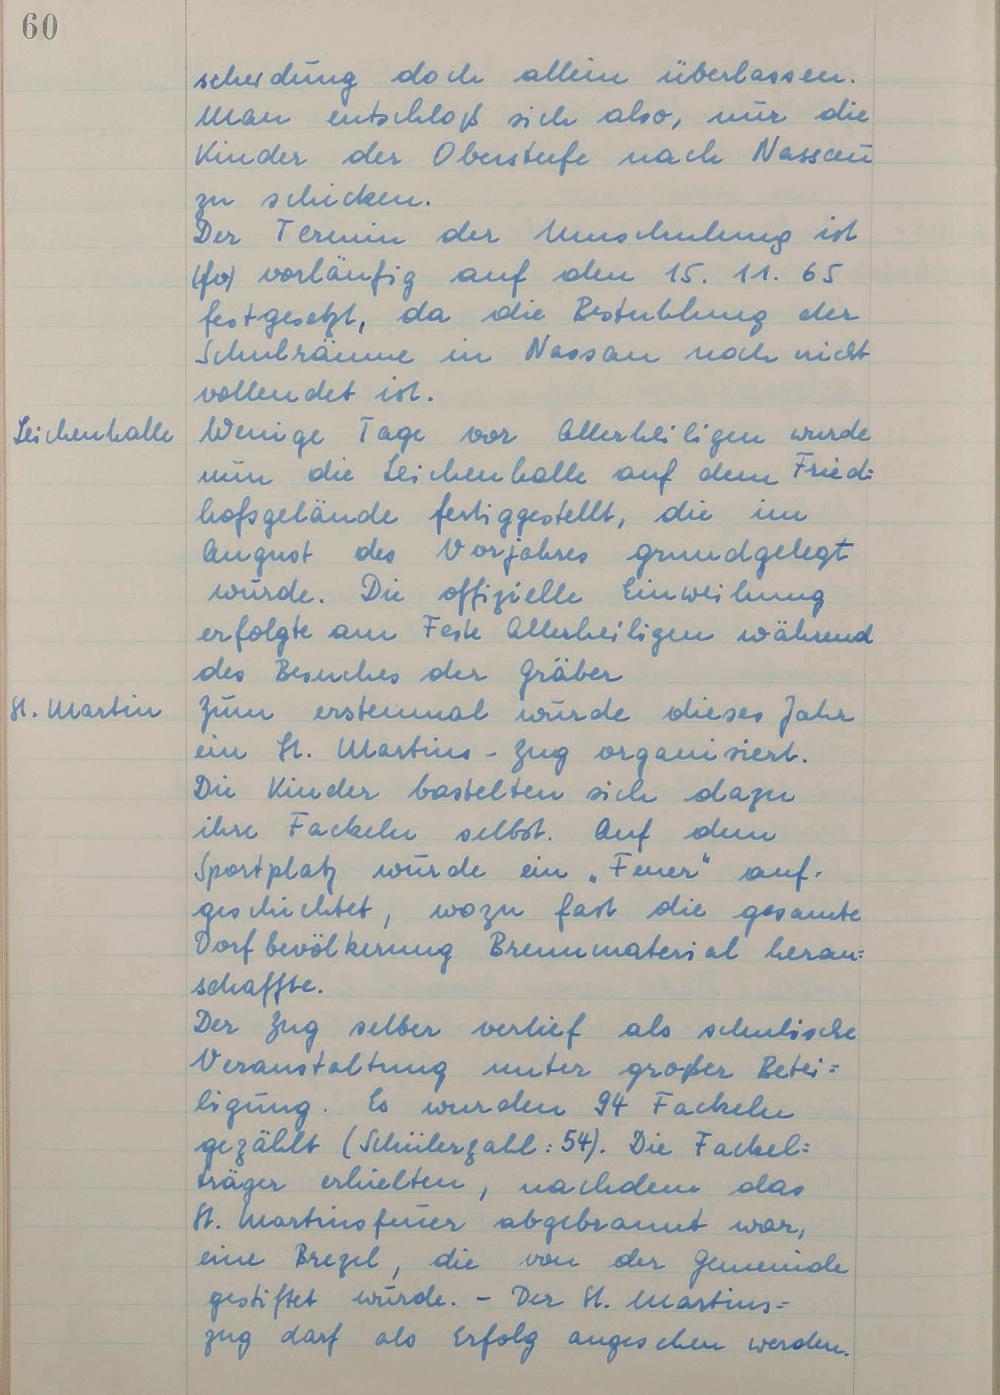 60
scheidung doch allein überlassen.
Man entschloß sich also, nur die
Kinder der Oberstufe nach Nassau
zu schicken.
Der Termin der Umschulung ist
(fv) vorläufig auf den 15. 11. 65
festgesetzt, da die Bestuhlung der
Schulräume in Nassau noch nicht
vollendet ist.
Leichenhalle Wenige Tage vor Allerheiligen wurde
nun die Leichenhalle auf dem Fried=
hofsgelände fertiggestellt, die im
August des Vorjahres grundgelegt
wurde. Die offizielle Einweihung
erfolgte am Feste Allerheiligen während
des Besuches der Gräber
St. Martin Zum erstenmal wurde dieses Jahr
ein St. Martins - Zug organisiert.
Die Kinder bastelten sich dazu
ihre Fackeln selbst. Auf dem
Sportplatz wurde ein „Feuer" auf-
geschichtet, wozu fast die gesamte
Dorfbevölkerung Brennmaterial heran=
schaffte.
Der Zug selber verlief als schulische
Veranstaltung unter großer Betei=
ligung. Es wurden 94 Fackeln
gezählt (Schülerzahl: 54). Die Fackel=
träger erhielten, nachdem das
St. Martinsfeuer abgebrannt war,
eine Brezel, die von der Gemeinde
gestiftet wurde. - Der St. Martins=
zug darf als Erfolg angesehen werden.